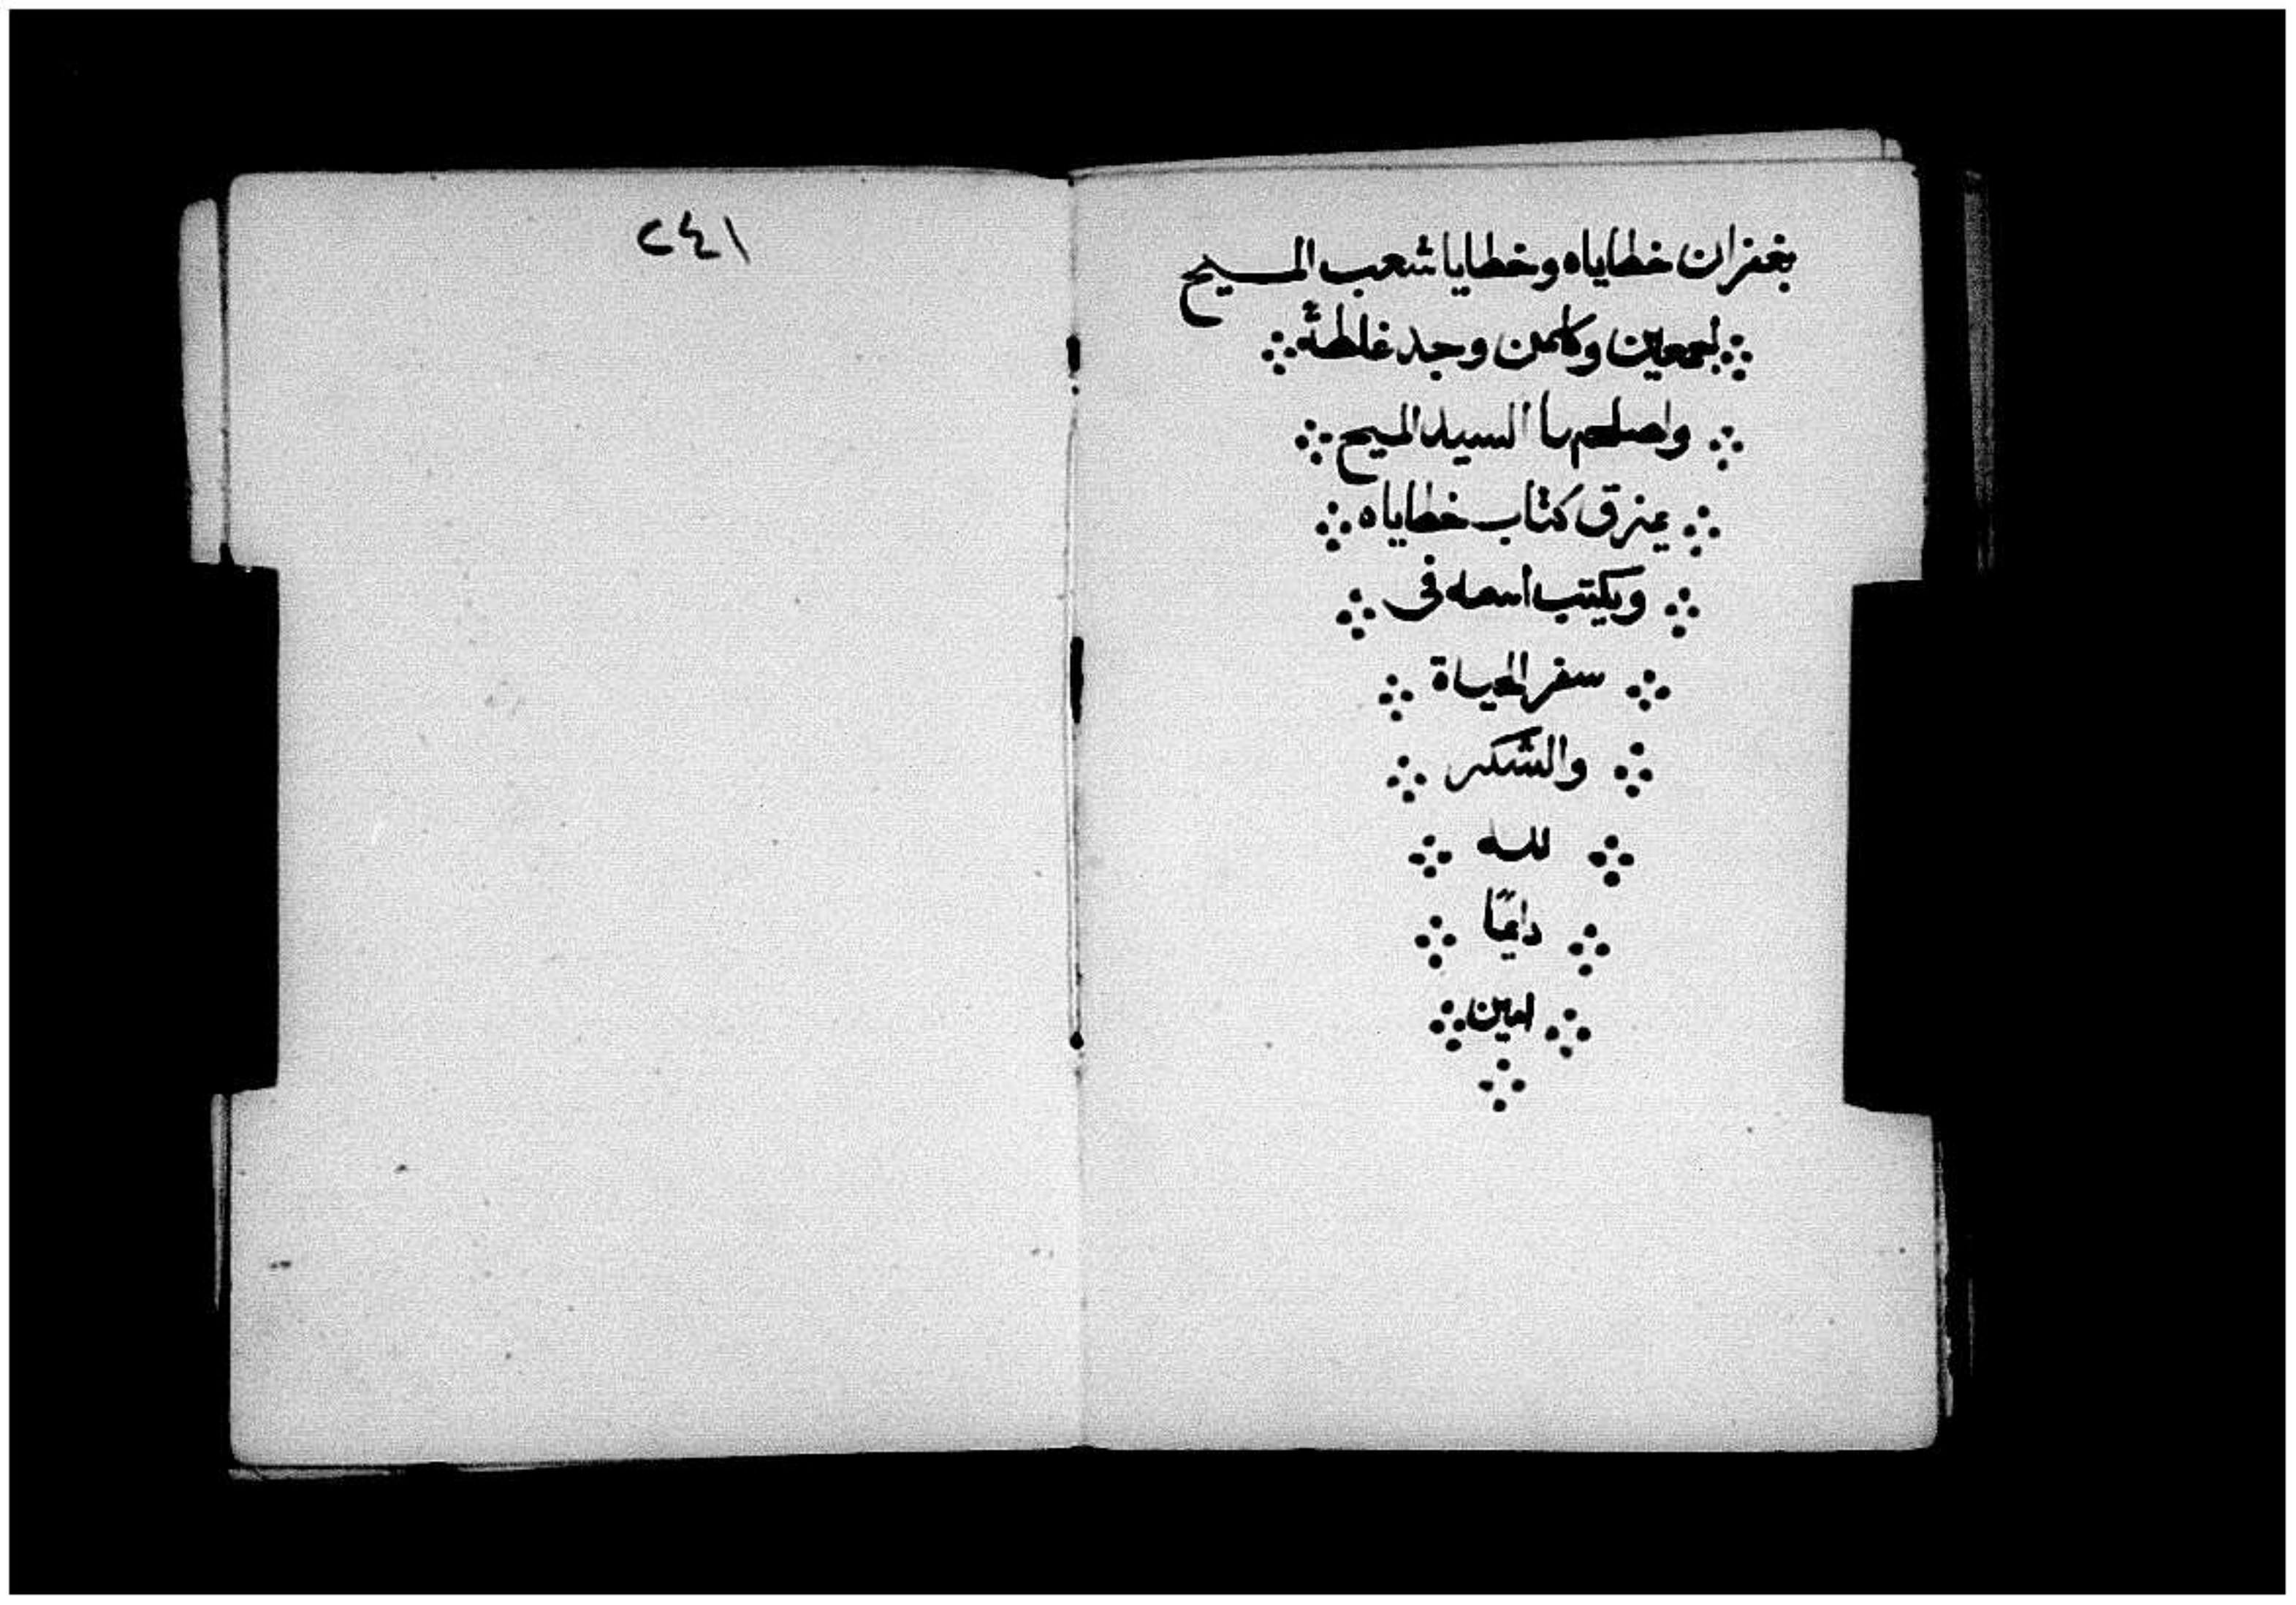 بغفران خطاياه وخطايا شعب المسيح
اجمعين وكلمن وجد غلطة
واصلحها السيد المسيح
يمزق كتاب خطاياه
ويكتب اسمه في
سفر الحياة
والشكر
لله
دايمًا
امين
٢٤١